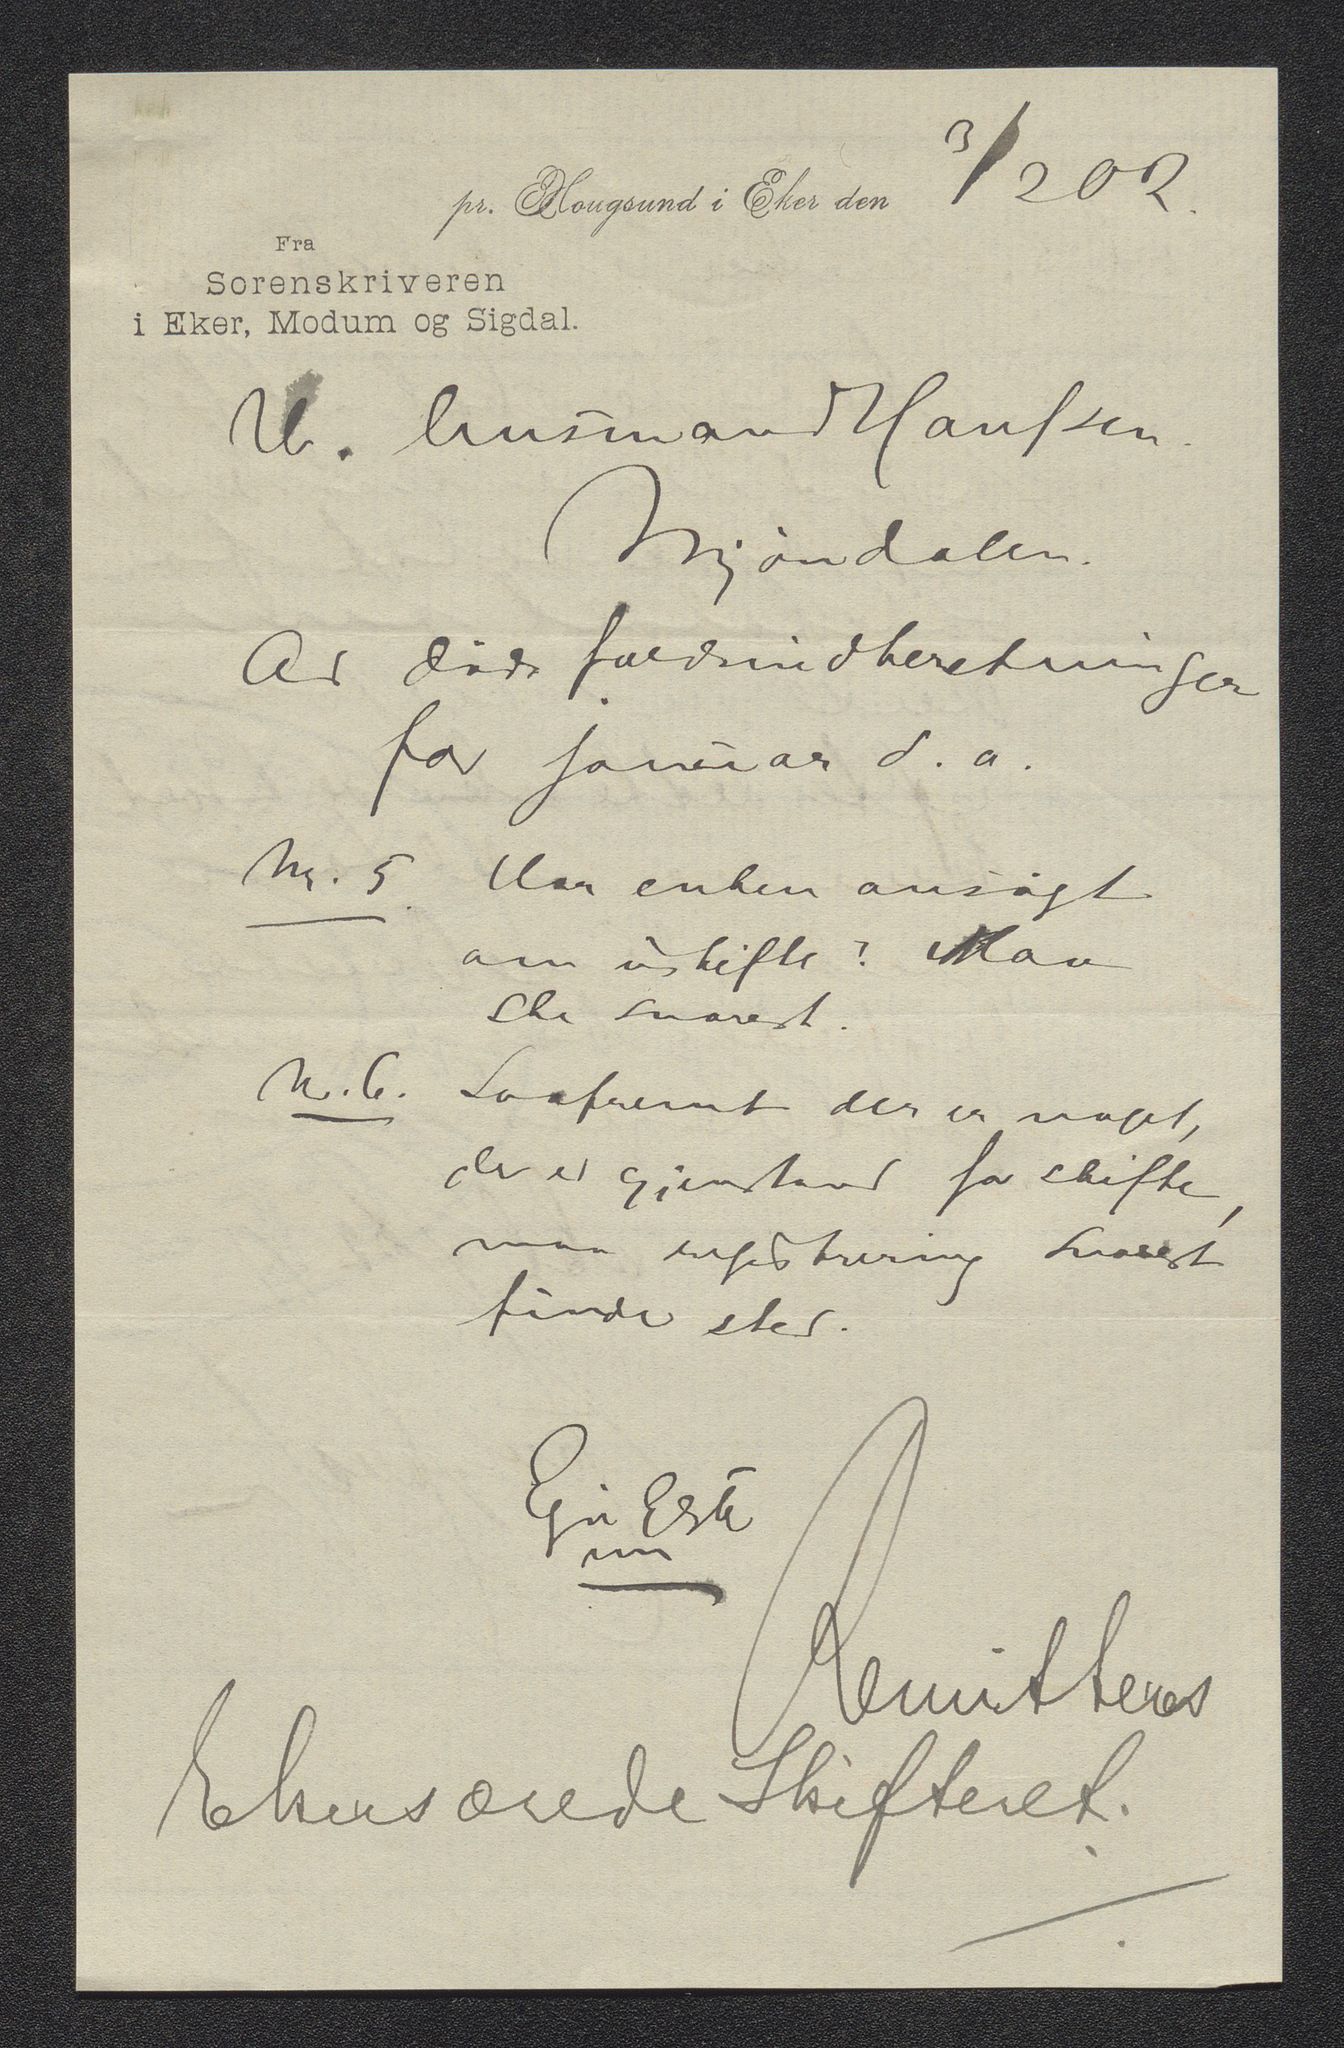 pr. Hougsund i Eker den 3/2 02.
Fra
Sorenskriveren
i Eker, Modum og Sigdal.
Hr. lensmand Haufsen.
Mjöndalen.
Ad dödsfaldsindberetninger
for januar d. a.
Nr. 5. Har enken ansögt
om uskifte? Maa
ske snarest.
Nr. 6. Saafremt der er noget,
der er gjenstand for skifte,
maa registrering snarest
finde sted.
Remitteres
Ekers ærede Skifteret.